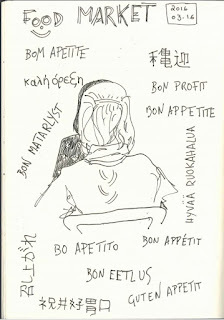 FOOD MARKET
2016
03.16
BOM APETITE
καλή όρεξη
BON PROFIT
BON APPETITE
BON MATARLYST
HYVÄÄ RUOKAHALUA
召し上がれ
BO APETITO
BON APPÉTIT
BON EETLUS
祝井好胃口
GUTEN APPETIT